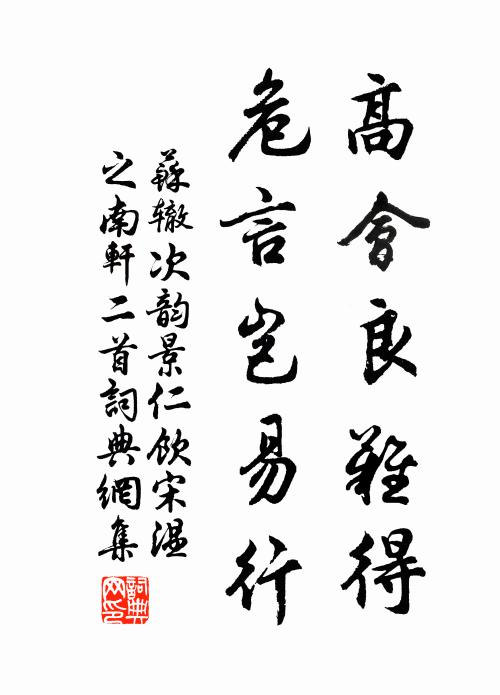 高會良難得
危言豈易行
蘇轍次韵景仁飲宋溫
之南軒二首詞典網集
詞典網印